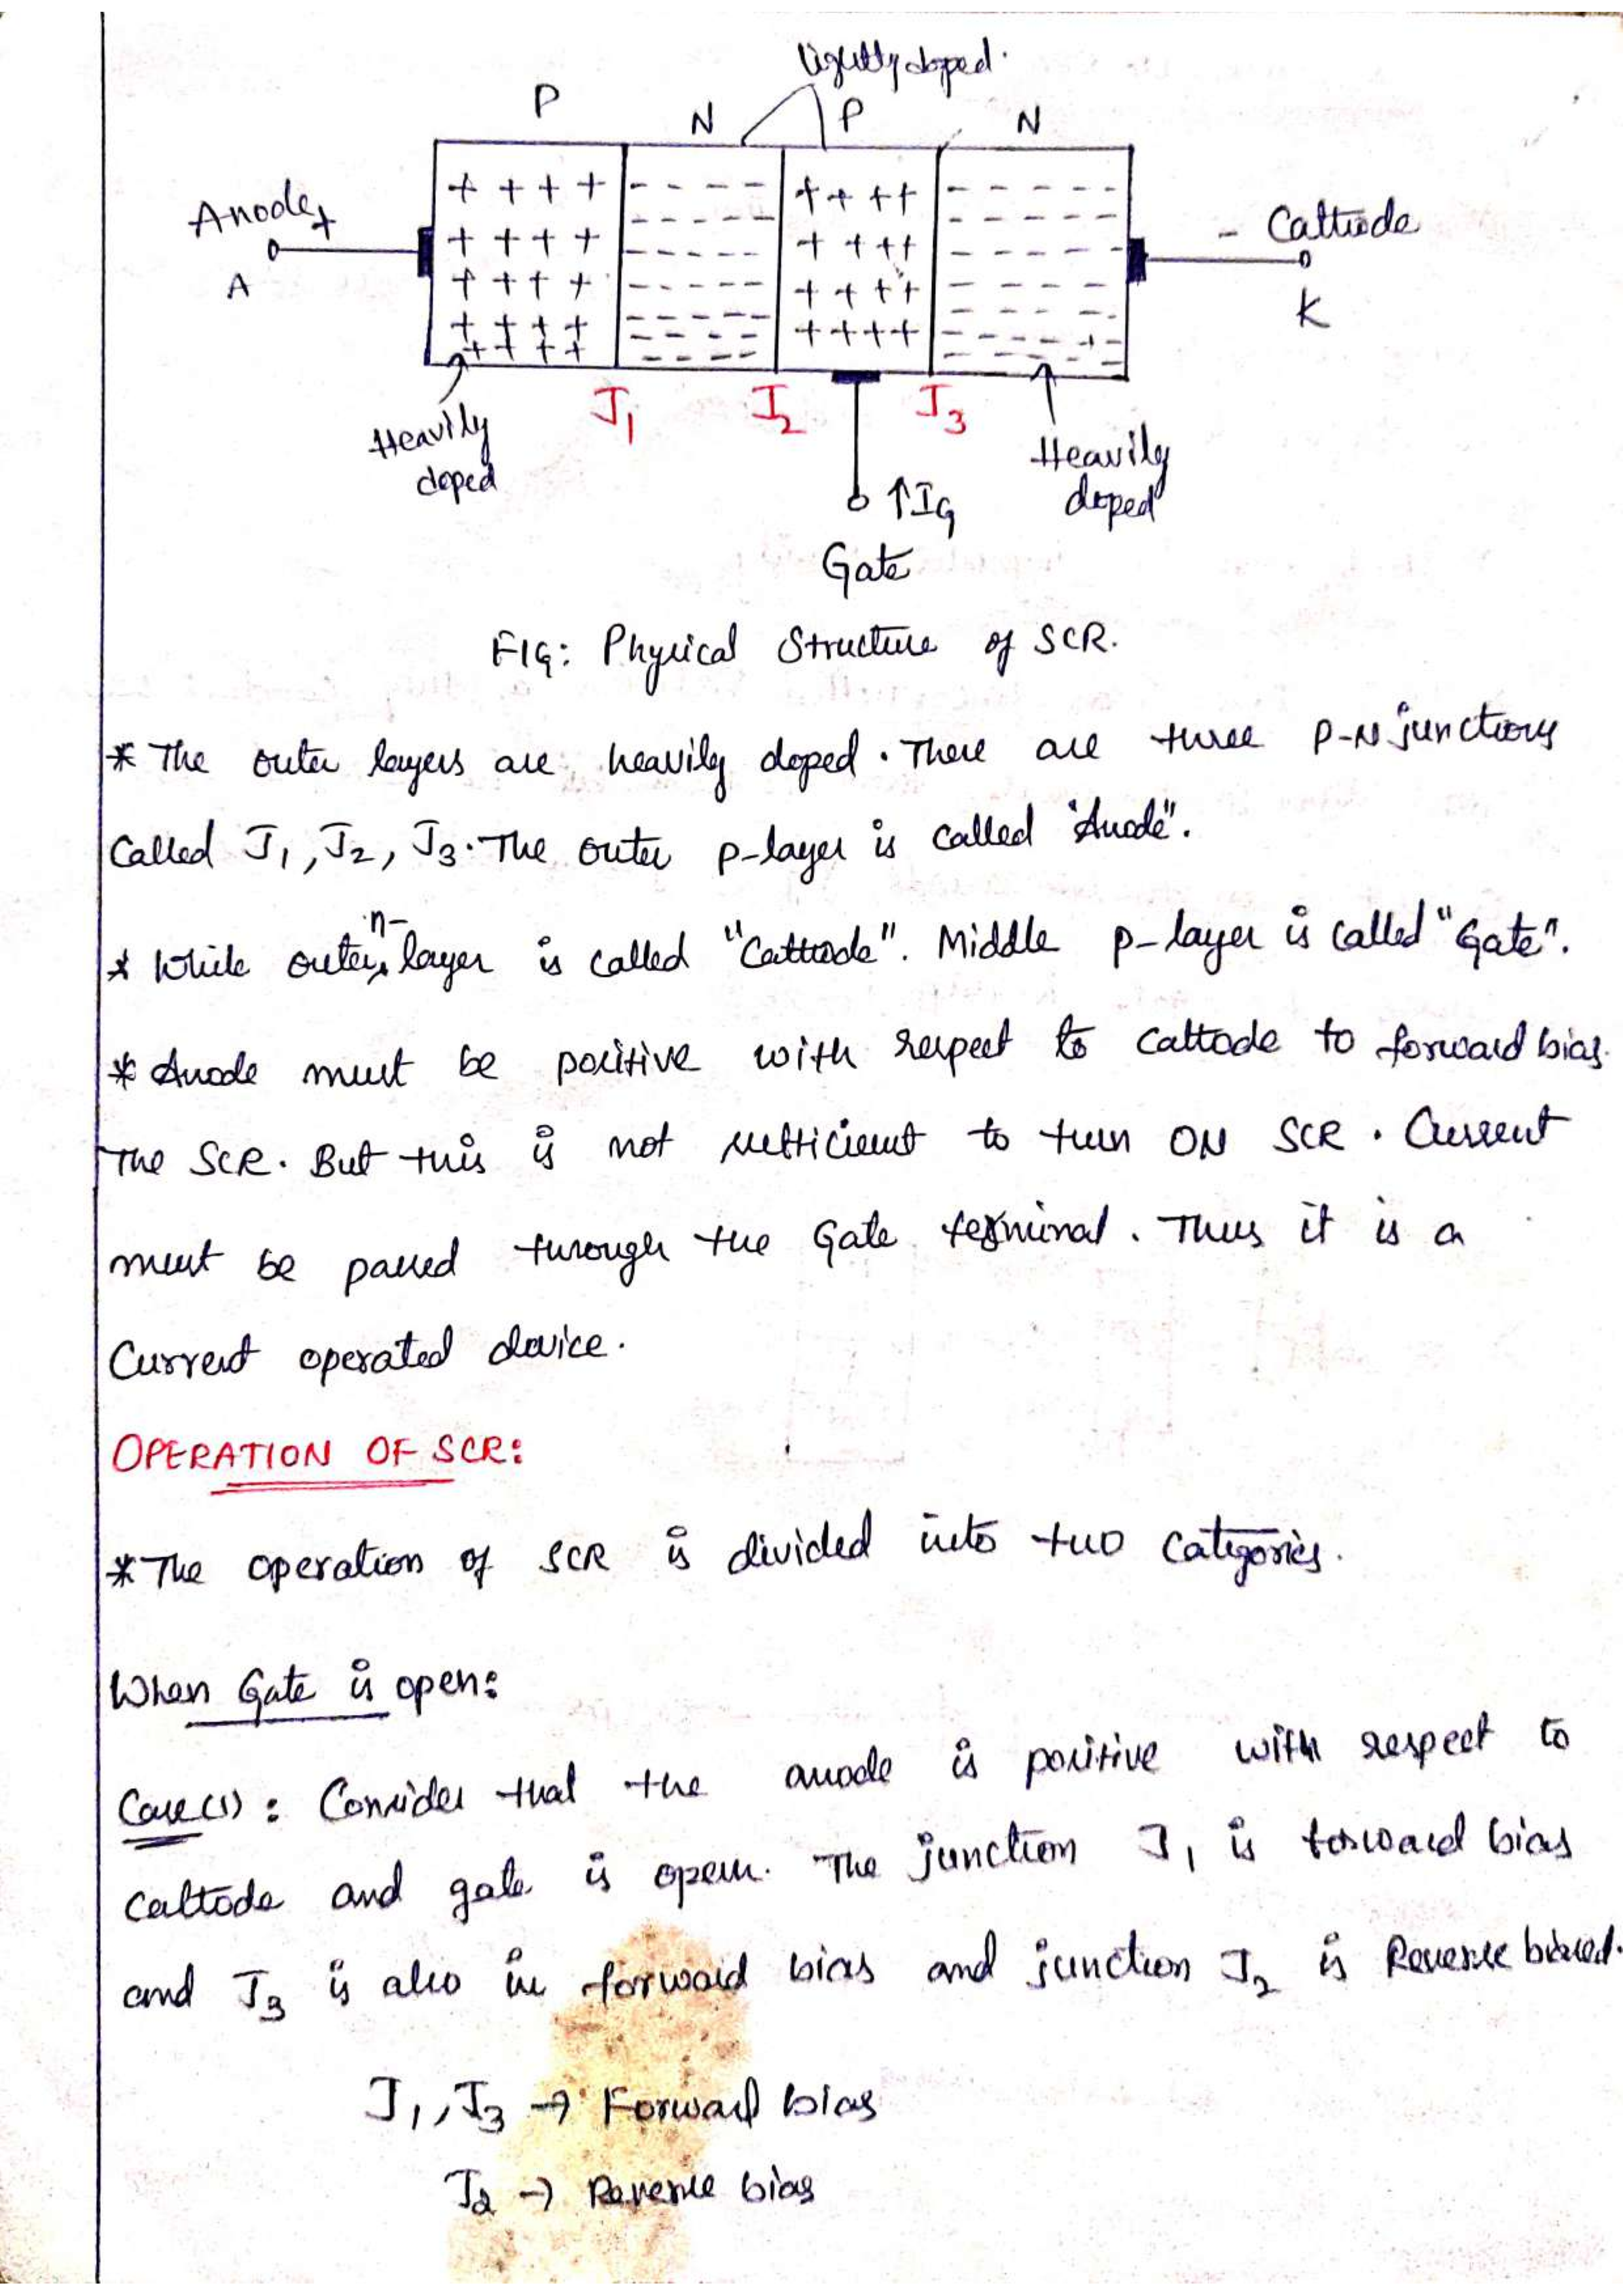 lightly doped.
P N P N
Anode +
- Cathode
A
K
J1 J2 J3
Heavily doped
Heavily doped
↑IG
Gate
FIG: Physical Structure of SCR.
* The outer layers are heavily doped. There are three P-N junctions
Called J1, J2, J3. The outer p-layer is called "Anode".
* While outer n-layer is called "Cathode". Middle p-layer is called "Gate".
* Anode must be positive with respect to cathode to forward bias.
The SCR. But this is not sufficient to turn ON SCR. Current
must be passed through the Gate terminal. Thus it is a
Current operated device.
OPERATION OF SCR:
* The operation of SCR is divided into two categories.
When Gate is open:
Case(1): Consider that the anode is positive with respect to
cathode and gate is open. The junction J1 is forward bias
and J3 is also in forward bias and junction J2 is Reverse biased.
J1, J3 → Forward bias
J2 → Reverse bias